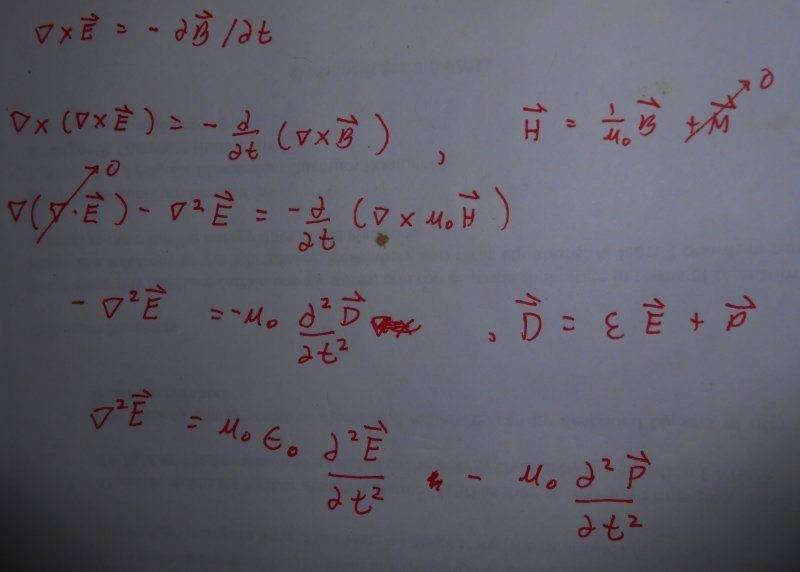 ∇×E⃗ = - ∂B⃗/∂t
∇×(∇×E⃗) = - ∂/∂t (∇×B⃗) , H⃗ = 1/μ₀ B⃗ + M⃗ → 0
∇(∇·E⃗) → 0 - ∇²E⃗ = - ∂/∂t (∇×μ₀H⃗)
- ∇²E⃗ = -μ₀ ∂²D⃗/∂t² , D⃗ = ε E⃗ + P⃗
∇²E⃗ = μ₀ϵ₀ ∂²E⃗/∂t² - μ₀ ∂²P⃗/∂t²